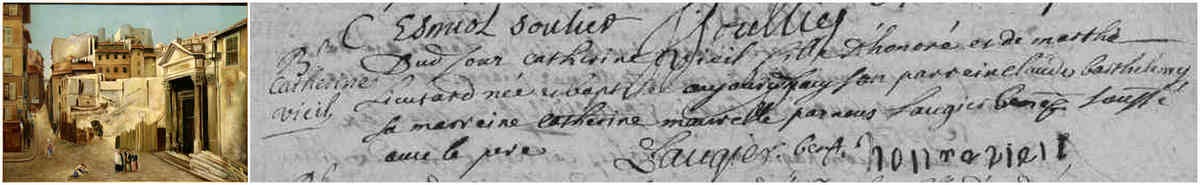 C Esmiol Soulier
B.
Catherine
Vieil
Dud jour catherine Vieil fille d'honoré et de marthe
Lieutard née et baptisée aujourdhuy son parrein claude barthelemy
sa marreine catherine mourelle par nous Laugier benef. soussé
avec le pere
Laugier benf.